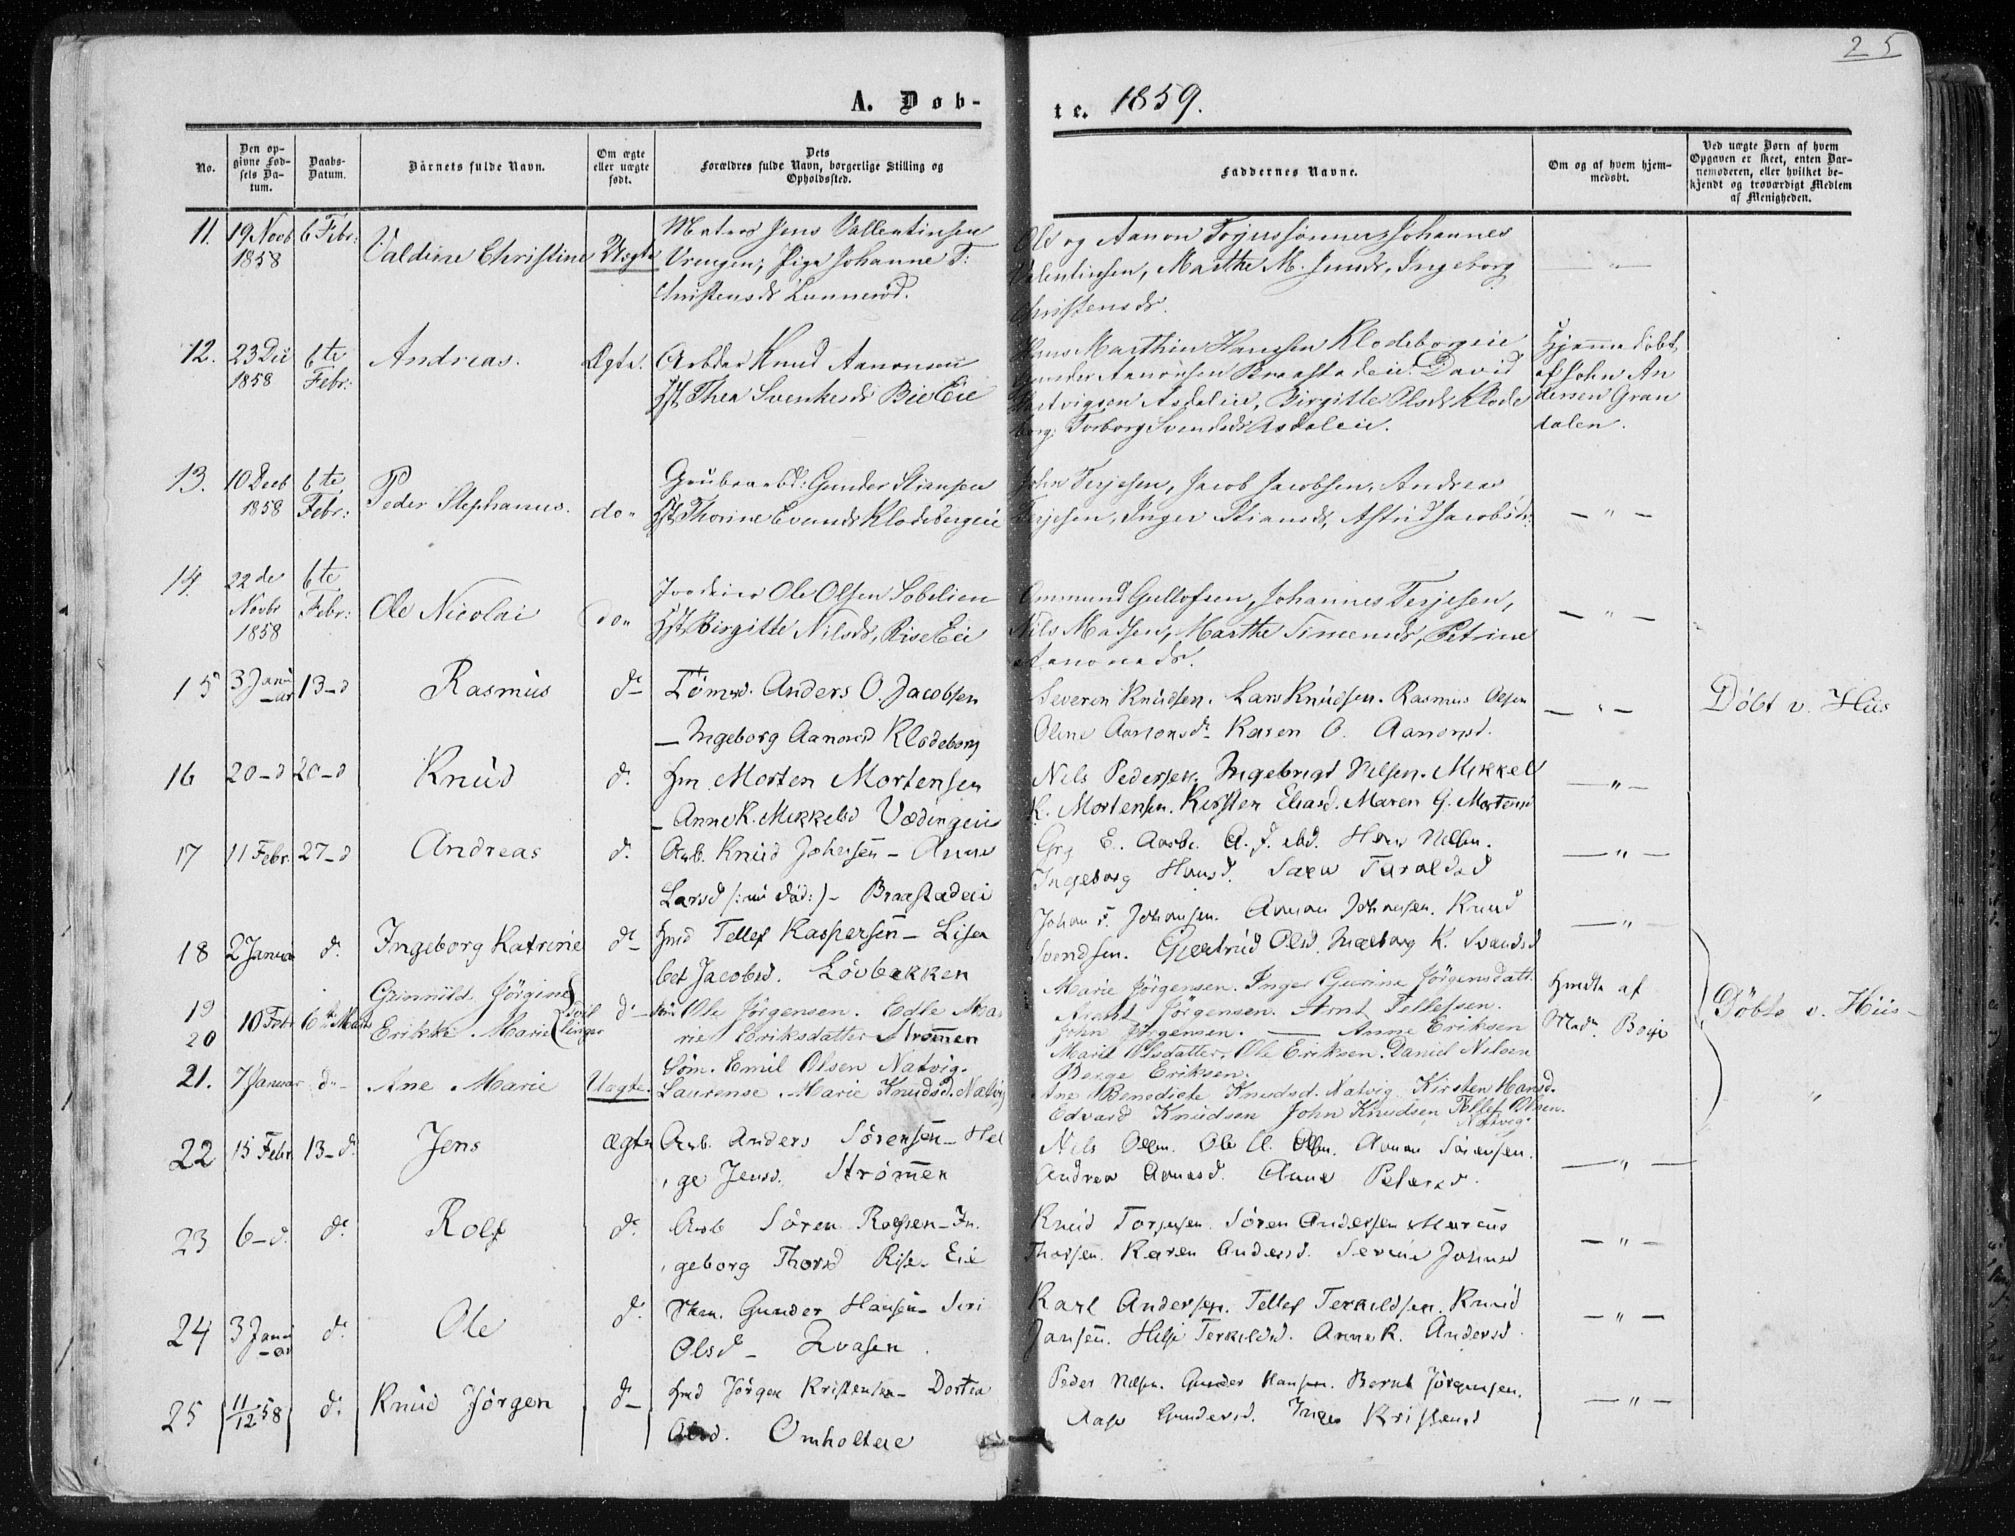 25
A. Døb-
te. 1859.
No.
Den op-
givne Fød-
sels Da-
tum.
Daabs-
Datum.
Barnets fulde Navn.
Om ægte
eller uægte
født.
Dets
Forældres fulde Navn, borgerlige Stilling og
Opholdssted.
Faddernes Navne.
Om og af hvem hjem-
medøbt.
Ved uægte Børn af hvem
Opgaven er skeet, enten Bar-
nemoderen, eller hvilket be-
kjendt og troværdigt Medlem
af Menigheden.
11. 19 Novb 6 Febr: Valdine Christine Uægte Matros Jens Vallentinsen
1858 Vrengen; Pige Johanne T:
Christensdr Lunnerød.
Ole og Aanon Terjessønner, Johannes
Valentinsen, Marthe M. Jensdr, Ingeborg
Christensdr.
— " —
12. 23 Dec 6te Andreas. Ægte. Arbdr Knud Aanonsen
1858 Febr: Hst. Thea Svenkesdr Bie Eie
Hans Marthin Hansen Klodeborgeie
Gunder Aanonsen Braastadeie. David
Hartvigsen Asdaleie, Birgitte Olsdr Klode
borg. Torborg Svendsdr Asdaleie.
Hjemmedøbt
af John An
dersen Gran
dalen.
13. 10 Decb 6te Peder Stephanus. do" Grubearbd: Gunder Stiansen
1858 Febr: Hst. Thorine Evensdr Klodeborgeie
John Terjesen, Jacob Jacobsen, Andreas
Terjesen, Inger Stiansdr, Astrid Jacobsdr.
— " —
14. 22de 6te Ole Nicolai do" Ole Olsen Lobelien
Novbr Febr: Hst. Birgitte Nilsdr, Rise Eie
1858
Ommund Gullofsen, Johannes Terjesen,
Nils Madsen, Marthe Simensdr, Petrine
Aanonsdr.
— " —
15 3 Janu 13-d Rasmus do Tømmd. Anders O. Jacobsen
-ar — Ingeborg Aanonsd Klodeborg
Severin Knudsen. Lars Knudsen. Rasmus Olsen
Oline Aanonsdr. Karen O. Aanonsd.
— " —
Døbt v. Hiis
16 20-d 20-d Knud d. Hm. Morten Mortensen
- Anne K. Mikkelsd Vædingeie
Nils Pedersen. Ingebrigt Nilsen. Mikkel
K. Mortensen. Kirsten Eliasd. Maren G. Mortensd
— " —
17 11 Febr. 27-d Andreas d. Arb. Knud Johnsen - Anne
Larsd (: nu død:) - Braastadeie
Grg E. Aasbi. A. J. ibd. Hans Nilsen.
Ingeborg Hansd. Sara Taraldsd
— " —
18 2 Januar d. Ingeborg Katrine d. Hmd Tellef Kaspersen - Lisa
bet Jacobsd. Løvbakken
Johan F. Johansen. Aanon Johnsen. Knud
Svendsen. Gjertrud Olsd. Ingeborg K. Svendsd
— " —
19 10 Febr 6te Marts Gunnild Jørgine
20 Erikke Marie Tvil
linger d. Ole Jørgensen. Edle Ma
rie Eriksdatter Strømmen
Marie Jørgensen. Inger Gurine Jørgensdatt.
Jørgensen. Arnt Tellefsen.
John Jørgensen. — Anne Eriksen
Maril Olsdatter, Ole Eriksen. Daniel Nilsen
Børge Eriksen.
Hmdt. af
Madm Boije
Døbte v. Hiis
21. 7 Januar d. Ane Marie Uægte. Søm. Emil Olsen Natvig.
Laurense Marie Knudsd. Natvig
Ane Benedicte Knudsd. Natvig. Kirsten Hansd.
Edvard Knudsen John Knudsen, Tellef Olsen.
Natvig.
"
22 15 Febr 13-d. Jens Ægte Arb. Anders Sørensen - Hel
ge Jensd. Strømmen
Nils Olsen. Ole A. Olsen. Aanon Sørensen.
Andrea Aanesd. Anne Petersd.
— " —
23 6-d. d. Rolf d. Arb Søren Rolfsen - In
geborg Thorsd Rise Eie
Knud Torjusen. Søren Andersen Marcus
Thorsen. Karen Andersd. Serine Johnsd
— " —
24 3 Janu d. Ole d. Gunder Hansen - Siri
-ar Olsd - Kvasen.
Karl Andersen. Tellef Terkildsen. Knud
Jansen. Helje Terkildsd. Anne K. Andersd.
— " —
25 11/12 58 d. Knud Jørgen d. Hmd Jørgen Kristensen - Dortea
Olsd. Omholteie
Peder Nilsen. Gunder Hansen. Bernt Jørgensen.
Aase Gundersd. Inger Kristensd
— " —